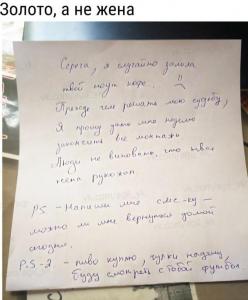 Золото, а не жена
Серега, я случайно залила
твой ноут кофе.
Прежде чем решать мою судьбу,
Я прошу дать мне неделю
закончить все монтажи
Люди не виноваты, что твоя
жена рукожоп.
PS - Напиши мне смс-ку -
можно ли мне вернуться домой
сегодня.
P.S-2 - пиво куплю, чулки надену,
Буду смотреть с тобой футбол